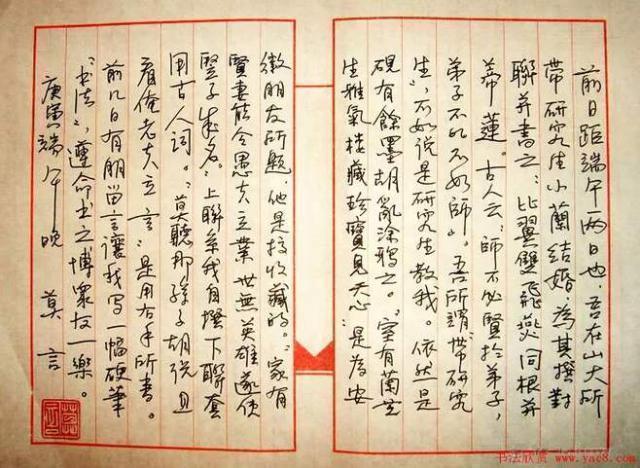 前日距端午一两日也，吾在山大所
带研究生小蘭结婚，为其撰對
聯并書之：比翼雙飛燕，同根并
蒂蓮。古人云：師不必賢於弟子，
弟子不必不如師”。吾所謂“带研究
生”，不如说是研究生教我。依然一是
硯有餘墨胡亂涂鴉之。“室有蘭芝
生雅氣，楼藏珍寶見天心”是為安
徽朋友所题，他是搞收藏的。“家有
賢妻能令愚夫立業，世無英雄遂使
竪子成名。”上聯系我自撰，下聯套
用古人词。“莫聽那孫子胡说，且
看俺老夫立言”是用右手所書。
前几日有朋留言讓我写一幅硬筆
“书法”，遵命书之，博眾友一樂。
庚寅端午晚 莫言
书法欣赏 www.yac8.com